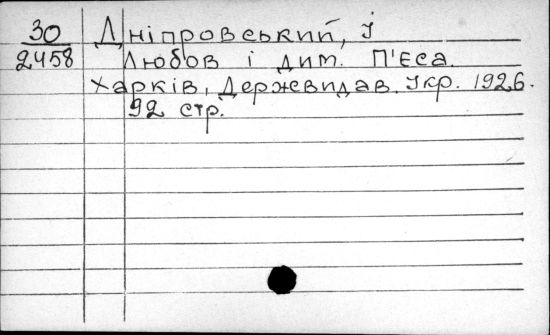 30 Дніпровський, І
2458 Любов і дим. П'єса.
Харків, Держвидав. Укр. 1926.
92 стр.